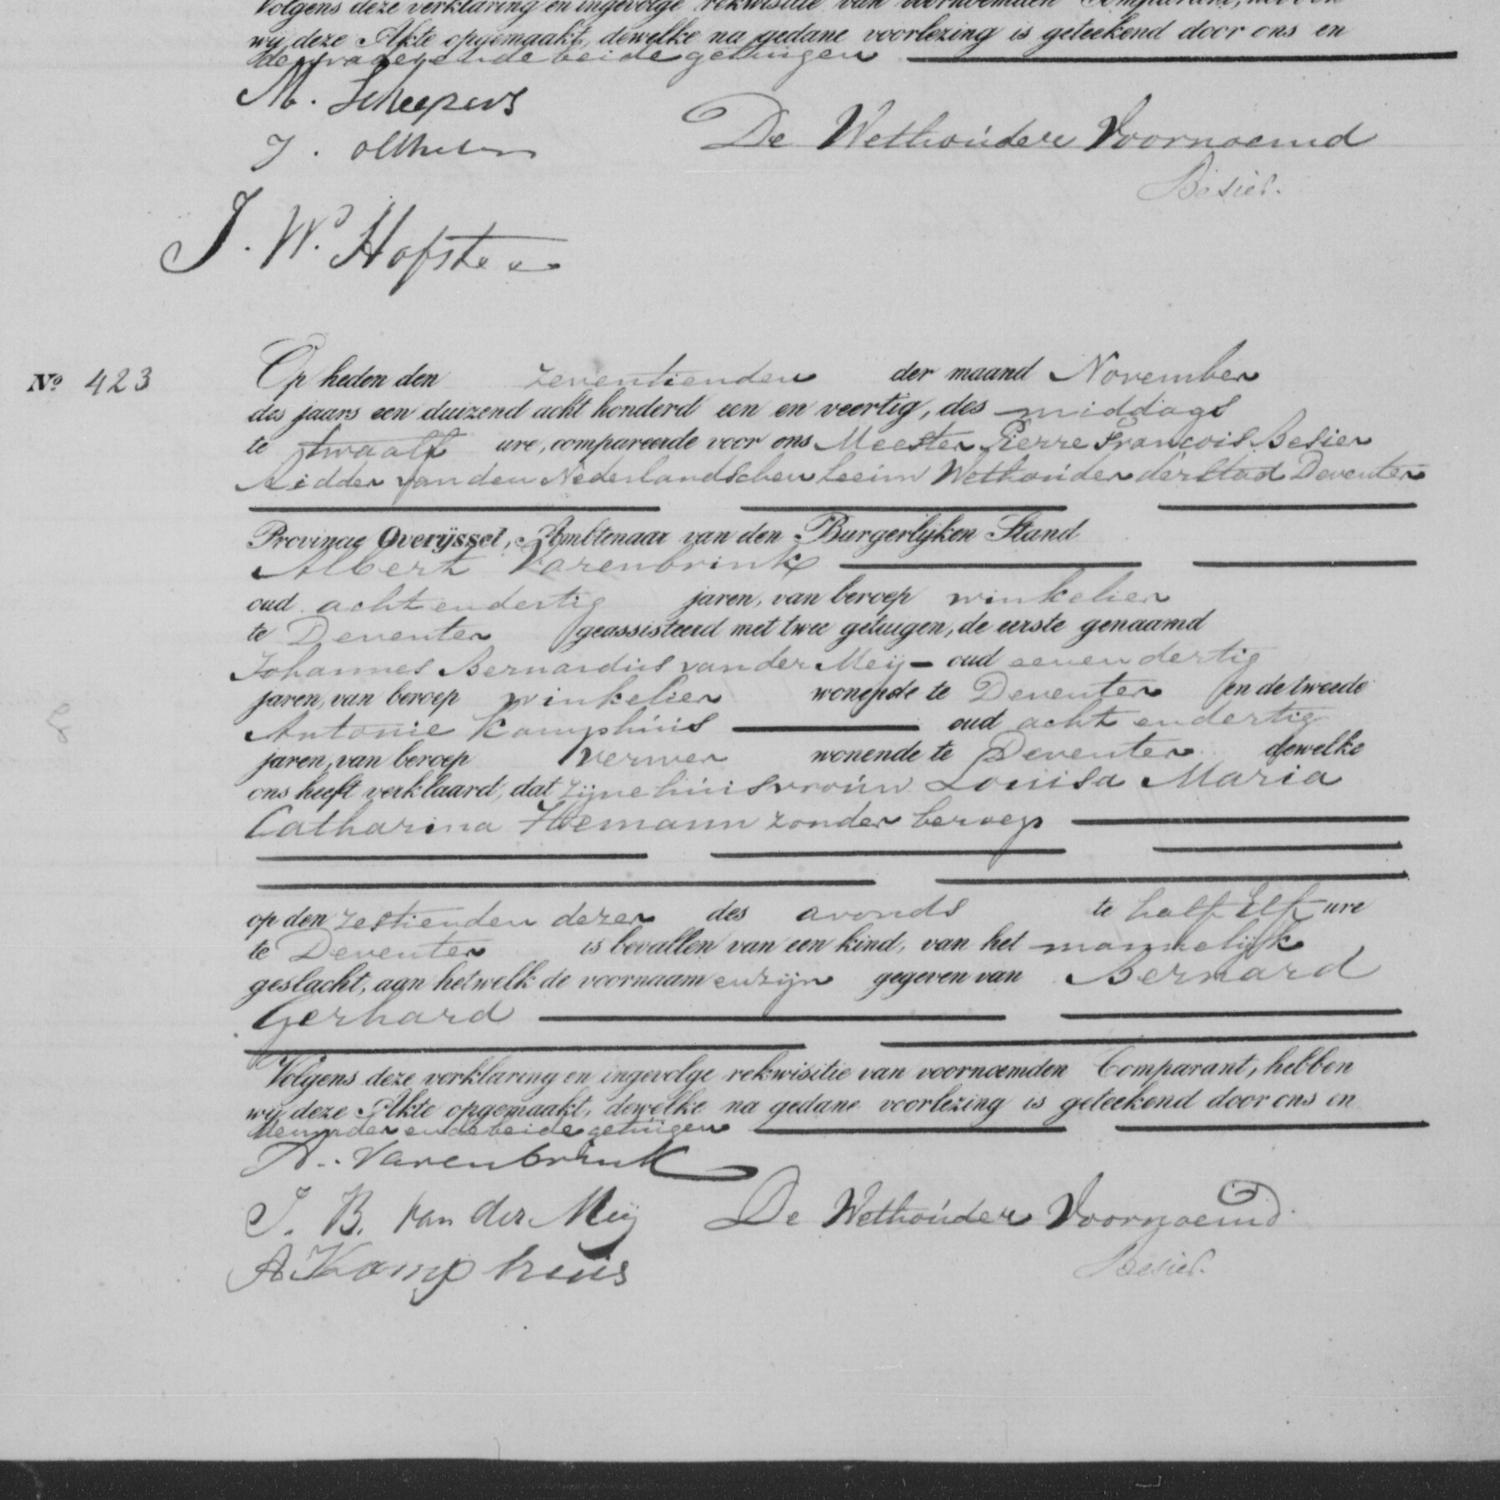 Volgens deze verklaring en ingevolge rekwisitie van voornoemden Comparant, hebben
wij deze Akte opgemaakt, dewelke na gedane voorlezing is geteekend door ons en
de beide getuigen
M. Scheepers
J. W. Hofstee
De Wethouder Voornoemd
Besier.
No. 423
Op heden den zeventienden der maand November
des jaars een duizend acht honderd een en veertig, des middags
te twaalf ure, compareerde voor ons Meester Pierre François Besier
Ridder van den Nederlandschen Leeuw Wethouder der Stad Deventer
Provincie Overijssel, Ambtenaar van den Burgerlijken Stand
Albert Varenbrink
oud acht en dertig jaren, van beroep winkelier
te Deventer geassisteerd met twee getuigen, de eerste genaamd
Johannes Bernardus van der Meij oud een en dertig
jaren, van beroep winkelier wonende te Deventer en de tweede
Antonie Kamphuis oud acht en dertig
jaren, van beroep verwer wonende te Deventer dewelke
ons heeft verklaard, dat zijne huisvrouw Louisa Maria
Catharina zonder beroep
op den zestienden dezer des avonds te half Elf ure
te Deventer is bevallen van een kind, van het mannelijk
geslacht, aan hetwelk de voornaam en zijn gegeven van Bernard
Gerhard
Volgens deze verklaring en ingevolge rekwisitie van voornoemden Comparant, hebben
wij deze Akte opgemaakt, dewelke na gedane voorlezing is geteekend door ons en
den vader en de beide getuigen
A. Varenbrink
J. B. van der Meij De Wethouder Voornoemd.
A Kamphuis Besier.